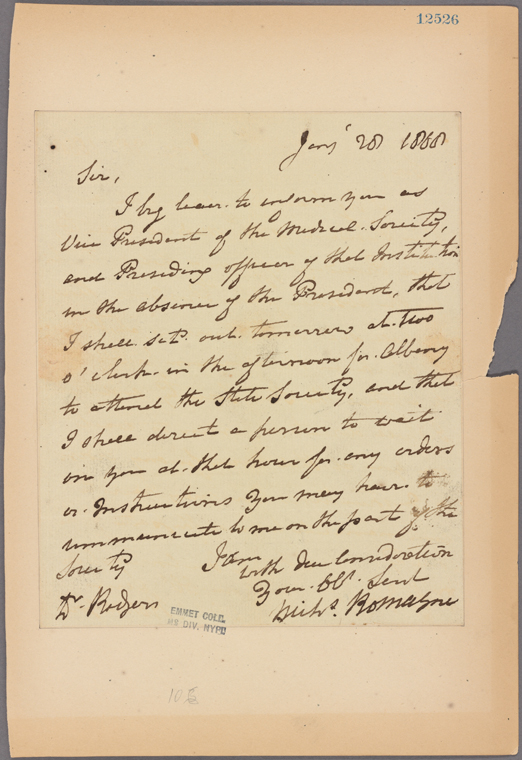 12526
Jany 28 1808
Sir,
I beg leave to inform you as
Vice President of the Medical Society,
and Presiding officer of that Institution
in the absence of the President, that
I shall set out tomorrow at two
o'clock in the afternoon for Albany
to attend the State Society, and that
I shall direct a person to wait
on you at that hour for any orders
or Instructions you may have to
communicate to me on the part of the
Society
I am
with due Consideration
Your Obt. Sert
Nichs. Romayne
Dr. Rodgers
EMMET COLL.
MS DIV. NYPL